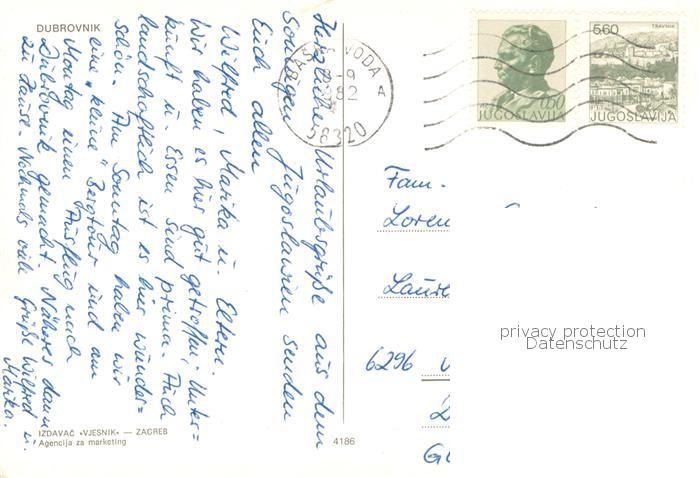 DUBROVNIK
Herzliche Urlaubsgrüße aus dem
Sonnigen Jugoslawien senden
Euch allen
Wilfred, Marika u. Eltern.
Wir haben es hier gut getroffen, Unter=
kunft u. Essen sind prima. Auch
landschaftlich ist es hier wunder=
schön. Am Sonntag haben wir
eine "kleine" Bergtour und am
Montag einen Ausflug nach
Dubrovnik gemacht. Näheres dann
zu Hause. Nochmals viele Grüße Wilfred u.
Marika.
IZDAVAČ «VJESNIK» — ZAGREB
Agencija za marketing
4186
VODA A
58320
0.60
JUGOSLAVIJA
TRAVNIK
5.60
JUGOSLAVIJA
Fam.
Loren
Laure
6296
privacy protection
Datenschutz